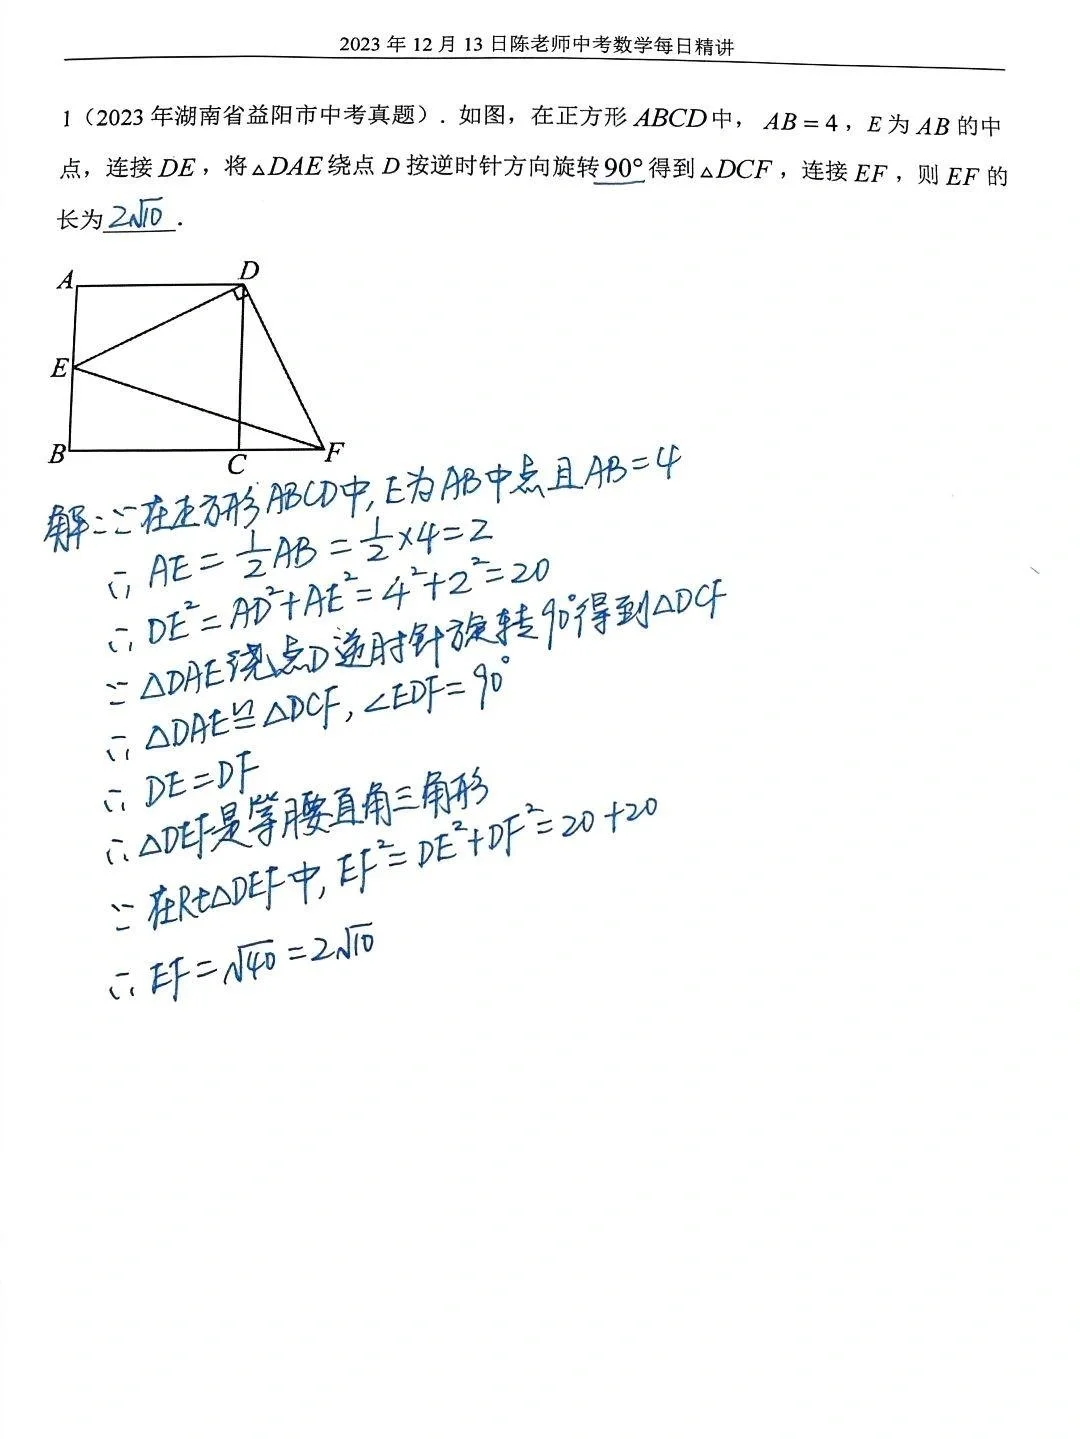 2023 年 12 月 13 日陈老师中考数学每日精讲
1（2023 年湖南省益阳市中考真题）. 如图，在正方形 ABCD 中， AB = 4 ，E 为 AB 的中
点，连接 DE ，将 △DAE 绕点 D 按逆时针方向旋转 90° 得到 △DCF ，连接 EF ，则 EF 的
长为 2√10 .
A D
E
B C F
解：∵在正方形ABCD中,E为AB中点且AB=4
∴ AE = 1/2 AB = 1/2 ×4=2
∴ DE²=AD²+AE²=4²+2²=20
∵ △DAE绕点D逆时针旋转90°得到△DCF
∴ △DAE≌△DCF, ∠EDF=90°
∴ DE=DF
∴ △DEF是等腰直角三角形
∵ 在Rt△DEF中, EF²=DE²+DF²=20+20
∴ EF=√40=2√10